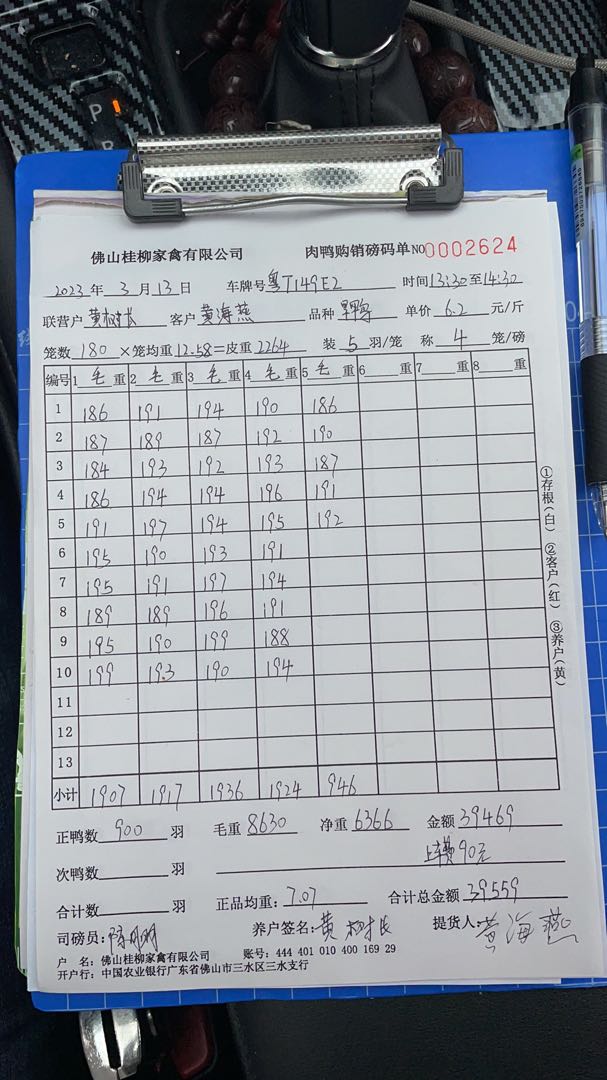 佛山桂柳家禽有限公司 肉鸭购销磅码单 NO 0002624
2023 年 3 月 13 日 车牌号 粤T149E2 时间 13:30 至 14:30
联营户 黄树长 客户 黄海燕 品种 单价 6.2 元/斤
笼数 180 ×笼均重 12.58 =皮重 2264 装 5 羽/笼 称 4 笼/磅
编号 1 毛 重 2 毛 重 3 毛 重 4 毛 重 5 毛 重 6 重 7 重 8 重
1 186 191 194 190 186
2 187 189 187 192 190
3 184 193 192 193 187
4 186 194 194 196 191
5 191 197 194 195 192
6 195 190 193 191
7 195 191 197 194
8 189 189 196 191
9 195 190 199 188
10 199 193 190 194
11
12
13
小计 1907 1917 1936 1924 946
①存根(白) ②客户(红) ③养户(黄)
正鸭数 900 羽 毛重 8630 净重 6366 金额 39469
次鸭数 羽 90元
合计数 羽 正品均重: 7.07 合计总金额 39559
司磅员: 养户签名: 黄树长 提货人: 黄海燕
户 名: 佛山桂柳家禽有限公司 账号: 444 401 010 400 169 29
开户行: 中国农业银行广东省佛山市三水区三水支行
P